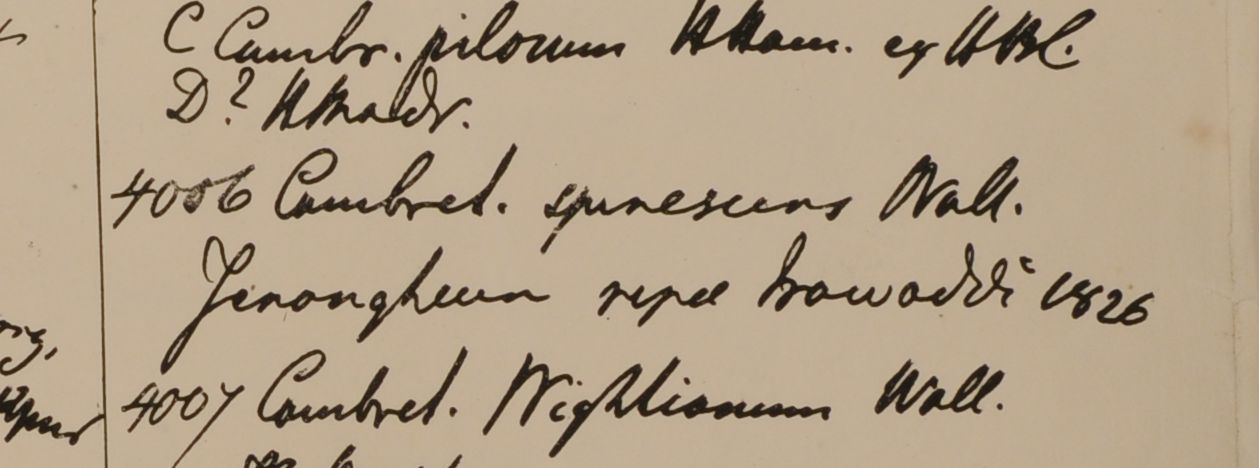 C Combr. pilosum HHam. ex HBC.
D? HMadr.
4006 Combret. spinescens Wall.
Yenangheun ripa Irawaddi 1826
4007 Combret. Wightianum Wall.